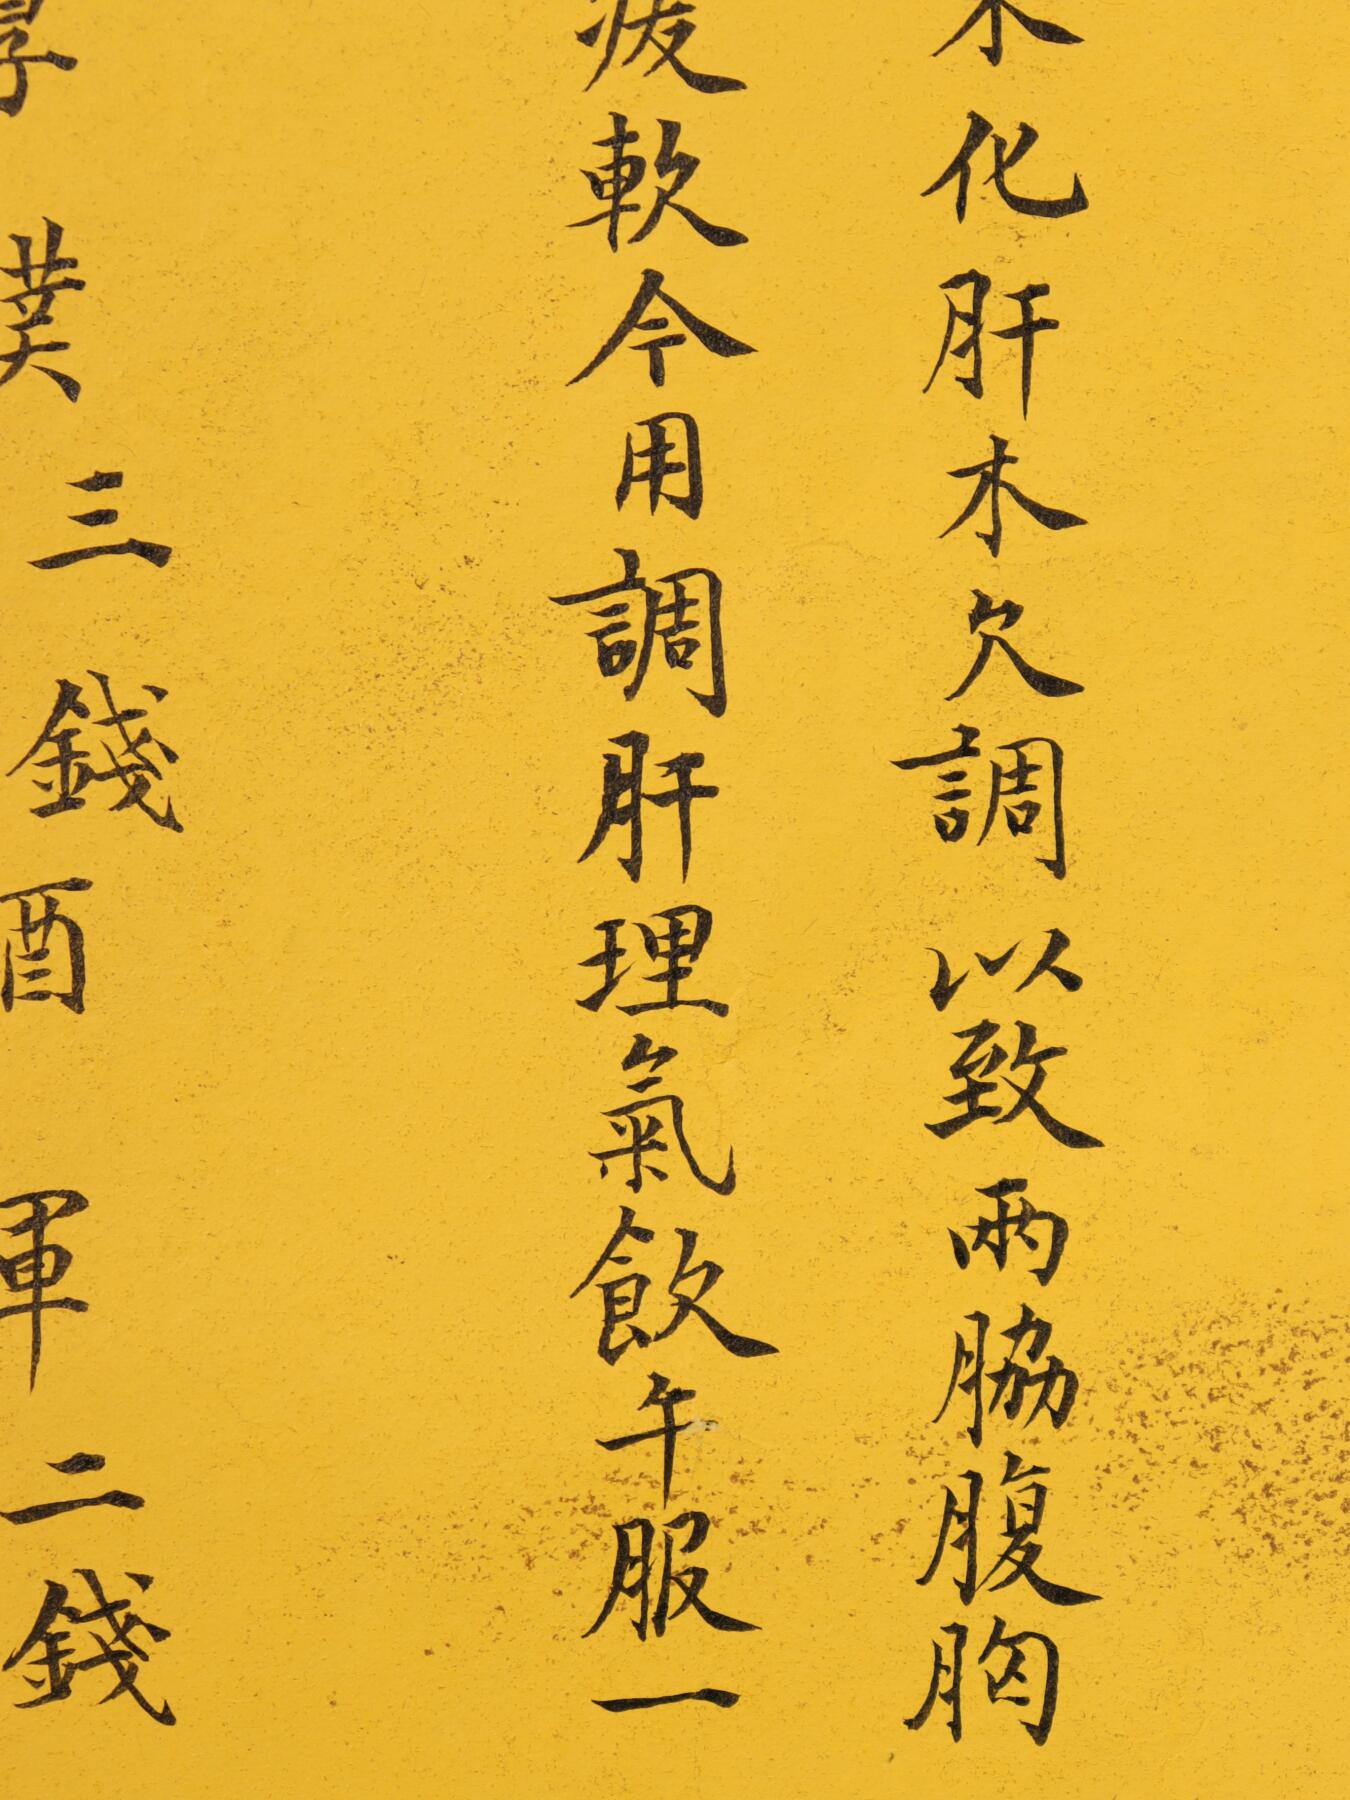 化肝木欠調以致兩脇腹胸
疲軟今用調肝理氣飲午服一
三錢 軍二錢